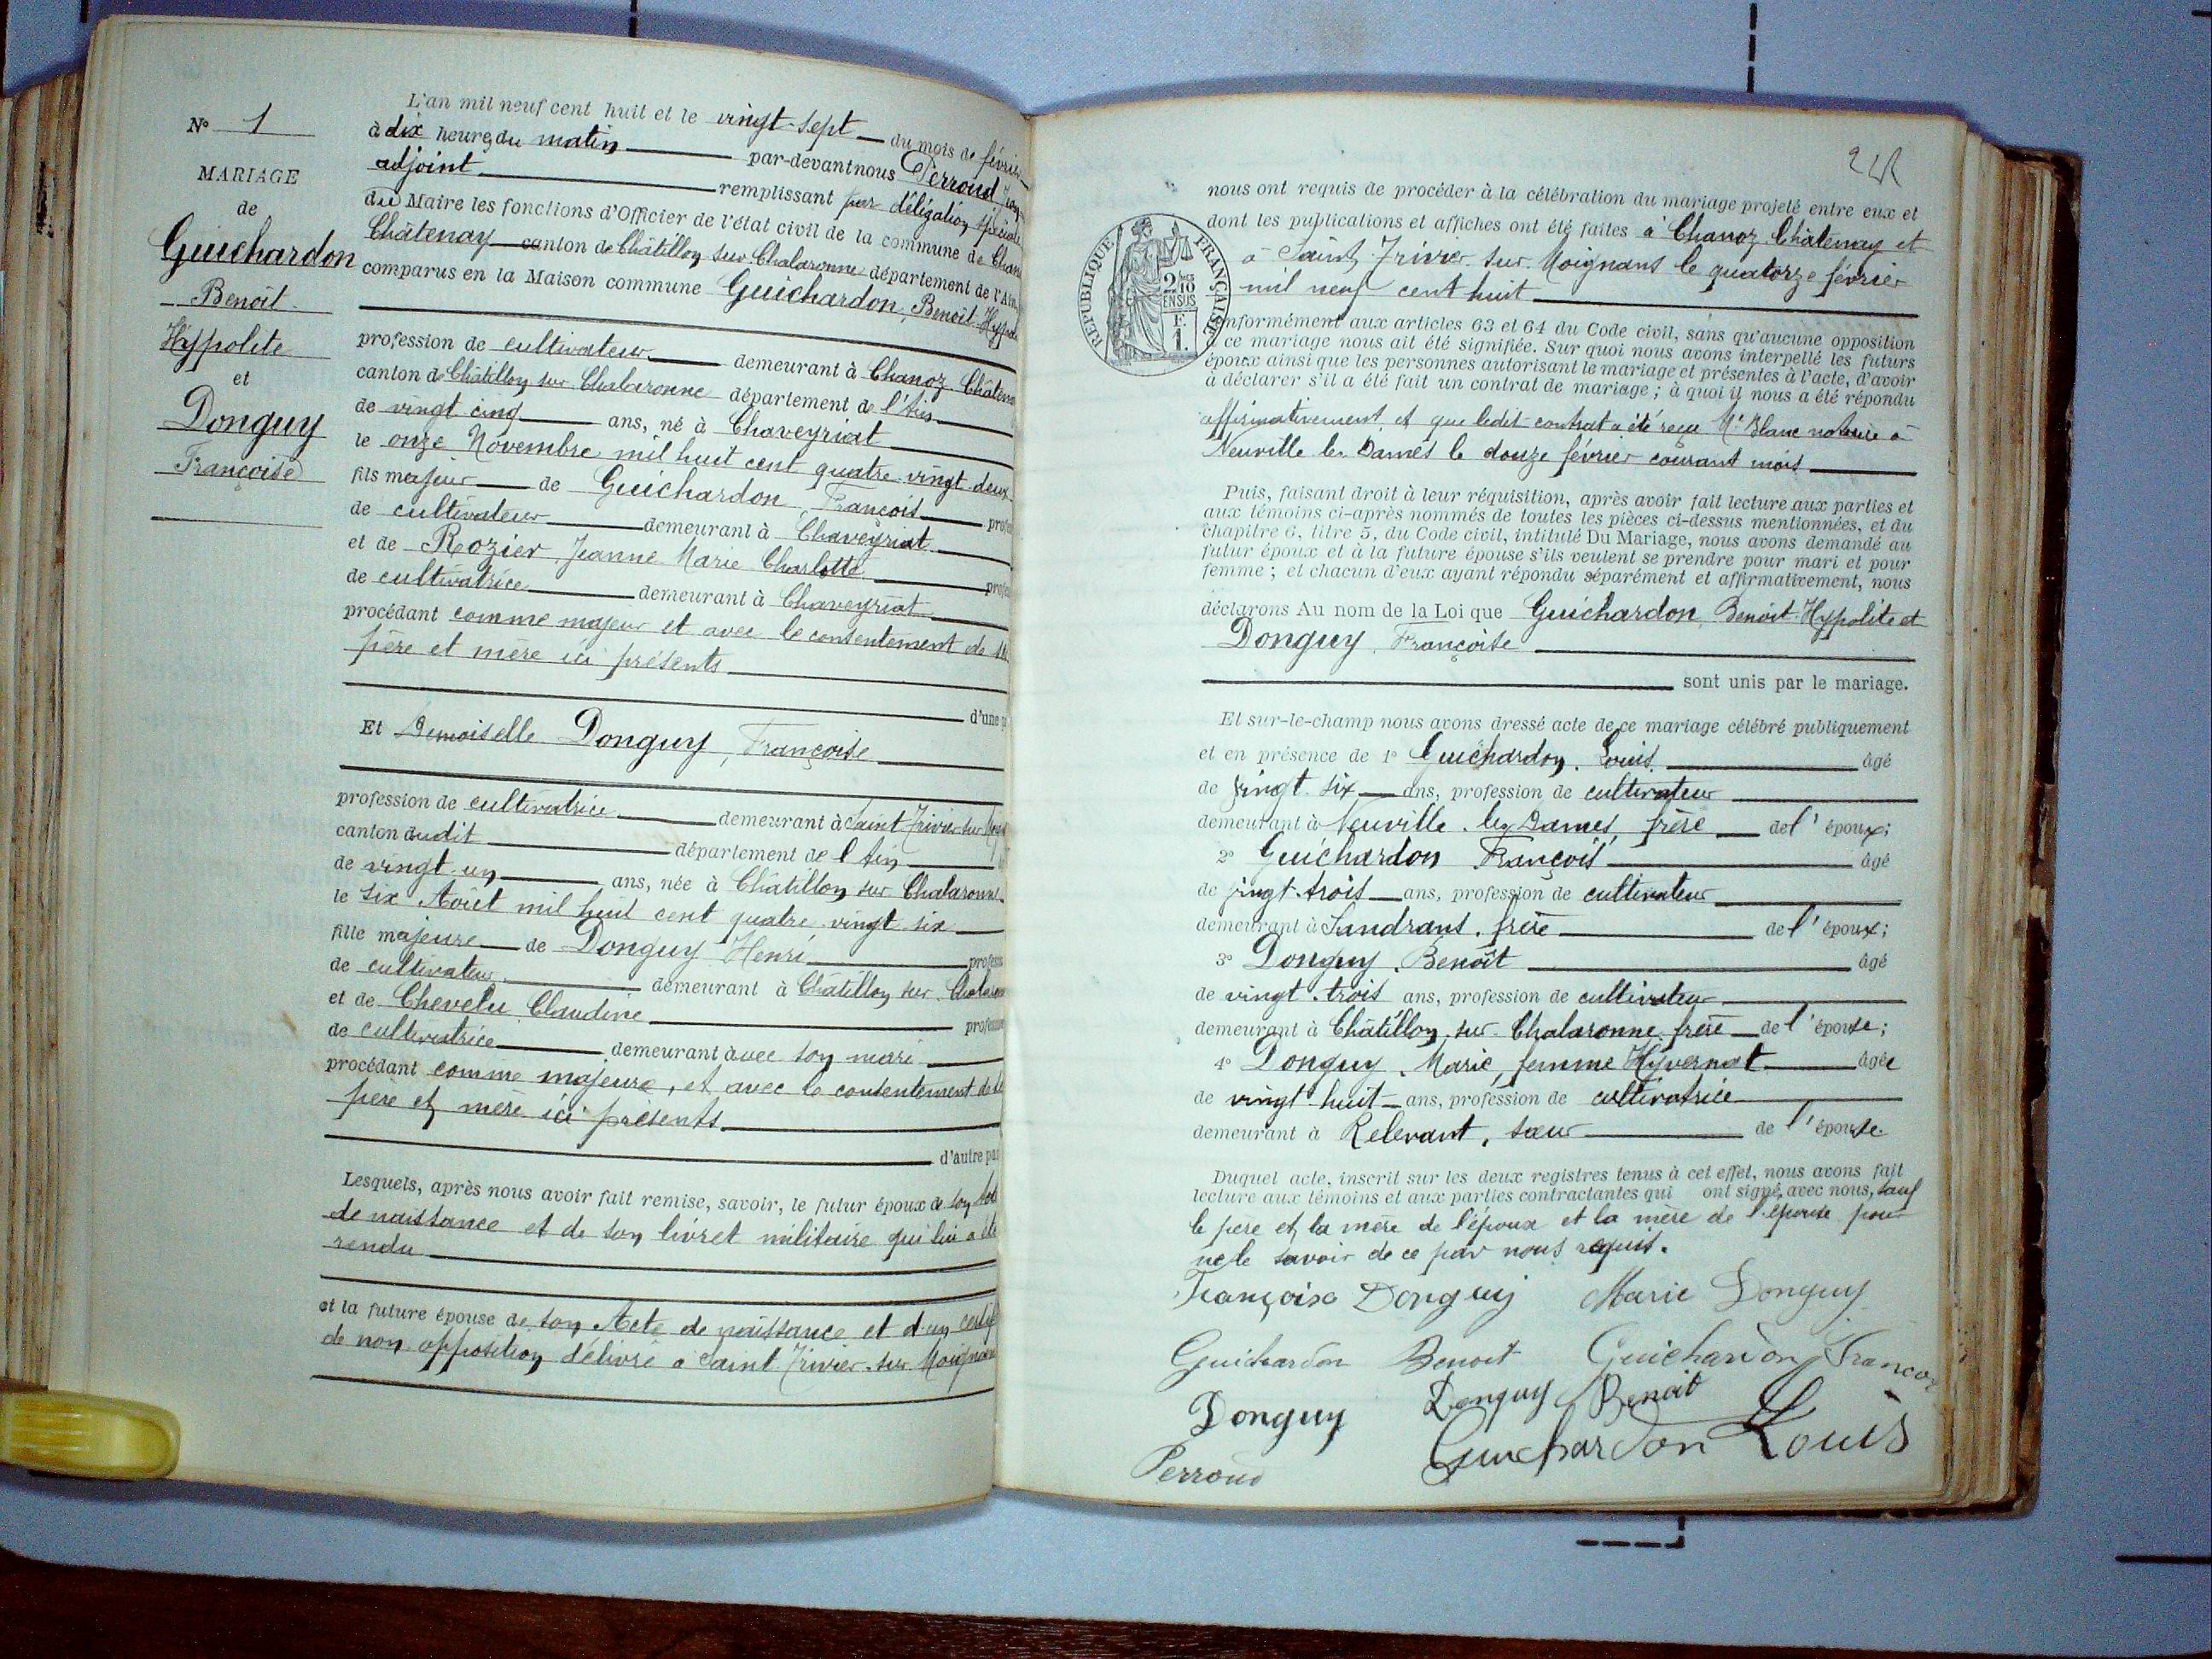 N° 1
MARIAGE
de
Guichardon
Benoit
Hyppolite
et
Donguy
Françoise
L'an mil neuf cent huit et le vingt-sept du mois de février
à dix heures du matin par-devant nous Perroud
adjoint remplissant par délégation spéciale
du Maire les fonctions d'Officier de l'état civil de la commune de
Châtenay canton de Châtillon sur Chalaronne département de l'Ain
comparus en la Maison commune Guichardon, Benoit
profession de cultivateur demeurant à Chanoz
canton de Châtillon sur Chalaronne département de l'Ain
de vingt cinq ans, né à Chaveyriat
le onze Novembre mil huit cent quatre-vingt-deux
fils majeur de Guichardon, François
de cultivateur demeurant à Chaveyriat
et de Rozier Jeanne Marie Charlotte
de cultivatrice demeurant à Chaveyriat
procédant comme majeur et avec le consentement de
père et mère ici présents
d'une
Et Demoiselle Donguy, Françoise
profession de cultivatrice demeurant à Saint Trivier sur
canton dudit département de l'Ain
de vingt-un ans, née à Châtillon sur Chalaronne
le six Août mil huit cent quatre-vingt six
fille majeure de Donguy Henri
de cultivateur demeurant à Châtillon sur
et de Chevelu Claudine
de cultivatrice demeurant avec son mari
procédant comme majeure, et avec le consentement de
père et mère ici présents
d'autre
Lesquels, après nous avoir fait remise, savoir, le futur époux de son
de naissance et de son livret militaire qui lui a été
rendu
et la future épouse de son Acte de naissance et d'un
de non opposition délivré à Saint Trivier-sur
nous ont requis de procéder à la célébration du mariage projeté entre eux et
dont les publications et affiches ont été faites à Chanoz Châtenay et
à Saint Trivier sur Moignans le quatorze février
mil neuf cent huit
RÉPUBLIQUE FRANÇAISE
2/10
EN SUS
F.
1.
conformément aux articles 63 et 64 du Code civil, sans qu'aucune opposition
à ce mariage nous ait été signifiée. Sur quoi nous avons interpellé les futurs
époux ainsi que les personnes autorisant le mariage et présentes à l'acte, d'avoir
à déclarer s'il a été fait un contrat de mariage ; à quoi il nous a été répondu
affirmativement, et que ledit contrat a été reçu Me Blanc notaire à
Neuville les Dames le douze février courant mois
Puis, faisant droit à leur réquisition, après avoir fait lecture aux parties et
aux témoins ci-après nommés de toutes les pièces ci-dessus mentionnées, et du
chapitre 6, titre 5, du Code civil, intitulé Du Mariage, nous avons demandé au
futur époux et à la future épouse s'ils veulent se prendre pour mari et pour
femme ; et chacun d'eux ayant répondu séparément et affirmativement, nous
déclarons Au nom de la Loi que Guichardon, Benoit-Hyppolite et
Donguy, Françoise
sont unis par le mariage.
Et sur-le-champ nous avons dressé acte de ce mariage célébré publiquement
et en présence de 1° Guichardon, Louis âgé
de vingt six ans, profession de cultivateur
demeurant à Neuville les Dames, frère de l'époux;
2° Guichardon François âgé
de vingt-trois ans, profession de cultivateur
demeurant à Sandrans, frère de l'époux;
3° Donguy, Benoît âgé
de vingt-trois ans, profession de cultivateur
demeurant à Châtillon sur Chalaronne frère de l'épouse;
4° Donguy, Marie, femme Hyvernat âgée
de vingt huit ans, profession de cultivatrice
demeurant à Relevant, sœur de l'épouse
Duquel acte, inscrit sur les deux registres tenus à cet effet, nous avons fait
lecture aux témoins et aux parties contractantes qui ont signé avec nous, sauf
le père et la mère de l'époux et la mère de l'épouse pour
ne le savoir de ce par nous requis.
Françoise Donguy Marie Donguy
Guichardon Benoit Guichardon
Donguy Donguy Benoit
Perroud Guichardon Louis